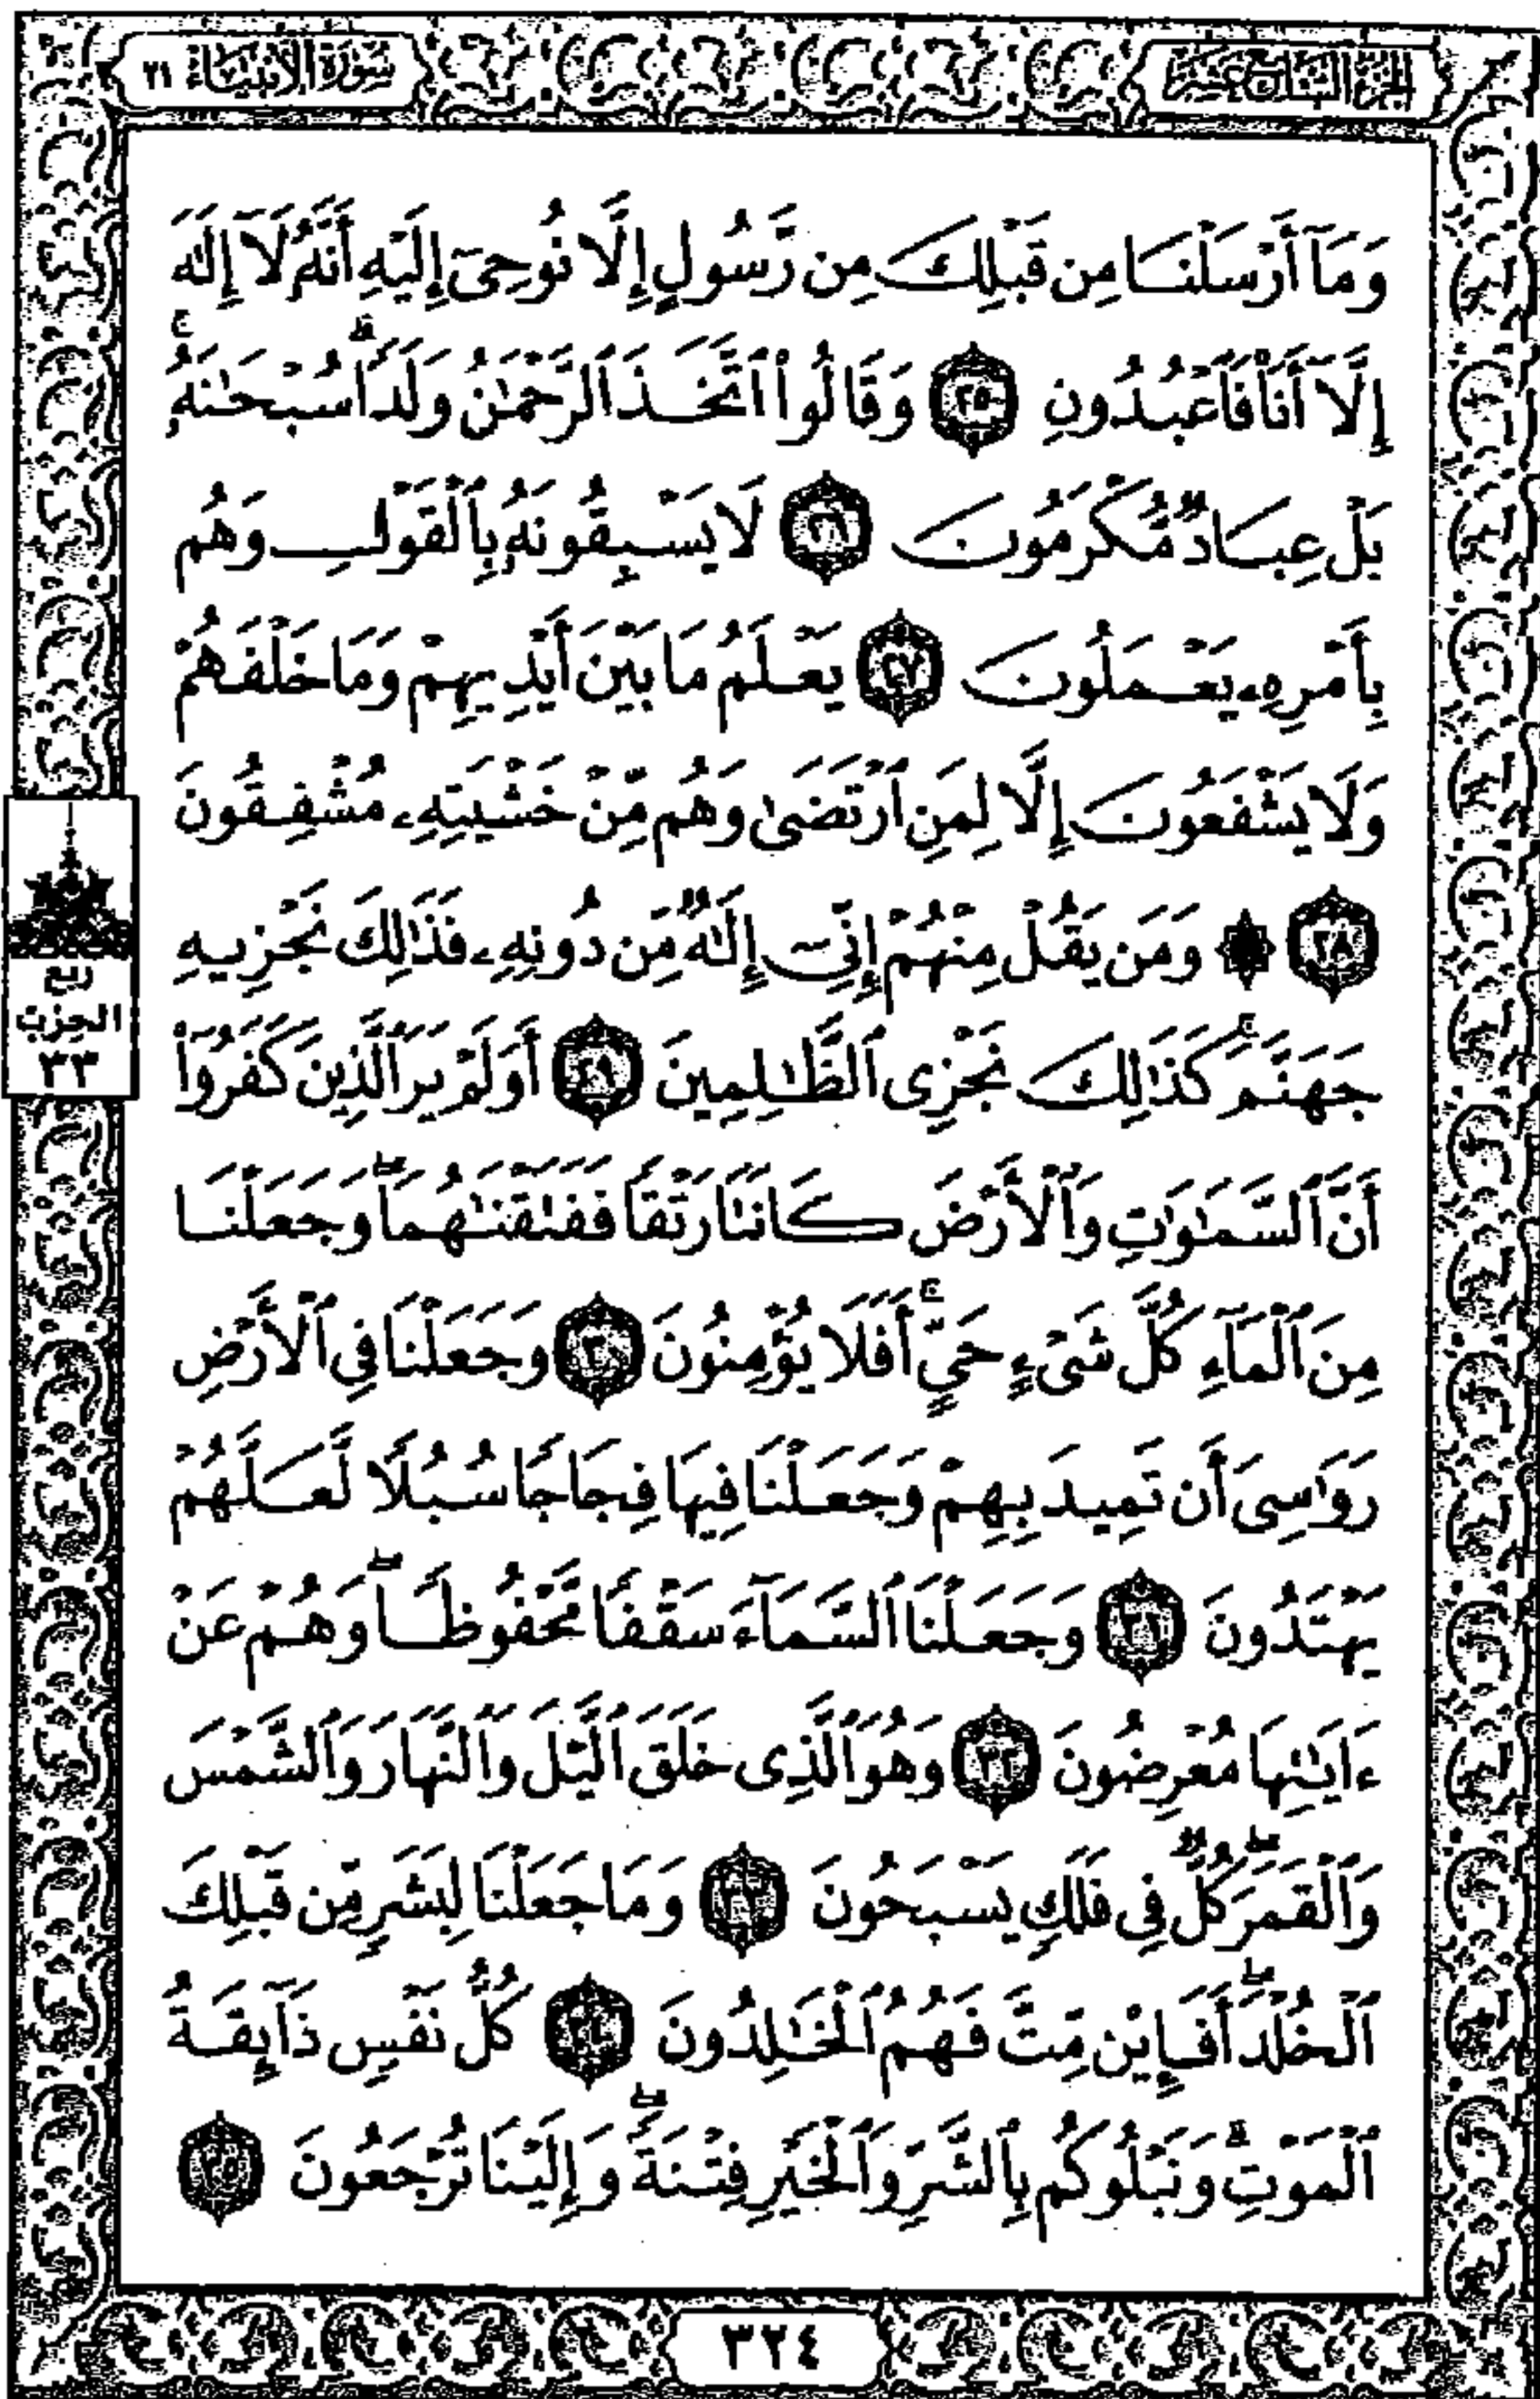 الجزء السابع عشر
سورة الأنبياء ٢١
وَمَآ أَرْسَلْنَا مِن قَبْلِكَ مِن رَّسُولٍ إِلَّا نُوحِىٓ إِلَيْهِ أَنَّهُۥ لَآ إِلَٰهَ
إِلَّآ أَنَا۠ فَٱعْبُدُونِ ٢٥ وَقَالُوا۟ ٱتَّخَذَ ٱلرَّحْمَٰنُ وَلَدًا ۗ سُبْحَٰنَهُۥ ۚ
بَلْ عِبَادٌ مُّكْرَمُونَ ٢٦ لَا يَسْبِقُونَهُۥ بِٱلْقَوْلِ وَهُم
بِأَمْرِهِۦ يَعْمَلُونَ ٢٧ يَعْلَمُ مَا بَيْنَ أَيْدِيهِمْ وَمَا خَلْفَهُمْ
وَلَا يَشْفَعُونَ إِلَّا لِمَنِ ٱرْتَضَىٰ وَهُم مِّنْ خَشْيَتِهِۦ مُشْفِقُونَ
٢٨ ۞ وَمَن يَقُلْ مِنْهُمْ إِنِّىٓ إِلَٰهٌ مِّن دُونِهِۦ فَذَٰلِكَ نَجْزِيهِ
جَهَنَّمَ ۚ كَذَٰلِكَ نَجْزِى ٱلظَّٰلِمِينَ ٢٩ أَوَلَمْ يَرَ ٱلَّذِينَ كَفَرُوٓا۟
أَنَّ ٱلسَّمَٰوَٰتِ وَٱلْأَرْضَ كَانَتَا رَتْقًا فَفَتَقْنَٰهُمَا ۖ وَجَعَلْنَا
مِنَ ٱلْمَآءِ كُلَّ شَىْءٍ حَىٍّ ۚ أَفَلَا يُؤْمِنُونَ ٣٠ وَجَعَلْنَا فِى ٱلْأَرْضِ
رَوَٰسِىَ أَن تَمِيدَ بِهِمْ وَجَعَلْنَا فِيهَا فِجَاجًا سُبُلًا لَّعَلَّهُمْ
يَهْتَدُونَ ٣١ وَجَعَلْنَا ٱلسَّمَآءَ سَقْفًا مَّحْفُوظًا ۖ وَهُمْ عَنْ
ءَايَٰتِهَا مُعْرِضُونَ ٣٢ وَهُوَ ٱلَّذِى خَلَقَ ٱلَّيْلَ وَٱلنَّهَارَ وَٱلشَّمْسَ
وَٱلْقَمَرَ ۖ كُلٌّ فِى فَلَكٍ يَسْبَحُونَ ٣٣ وَمَا جَعَلْنَا لِبَشَرٍ مِّن قَبْلِكَ
ٱلْخُلْدَ ۖ أَفَإِي۟ن مِّتَّ فَهُمُ ٱلْخَٰلِدُونَ ٣٤ كُلُّ نَفْسٍ ذَآئِقَةُ
ٱلْمَوْتِ ۗ وَنَبْلُوكُم بِٱلشَّرِّ وَٱلْخَيْرِ فِتْنَةً ۖ وَإِلَيْنَا تُرْجَعُونَ ٣٥
ربع
الحزب
٣٣
٣٢٤